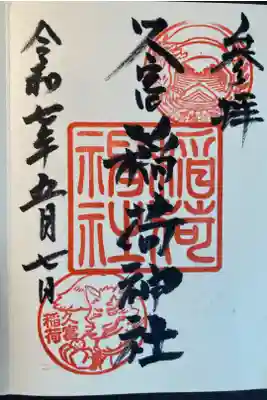 参拝
久富
稲荷神社
令和七年五月七日
稲荷
神社
久富
稲荷